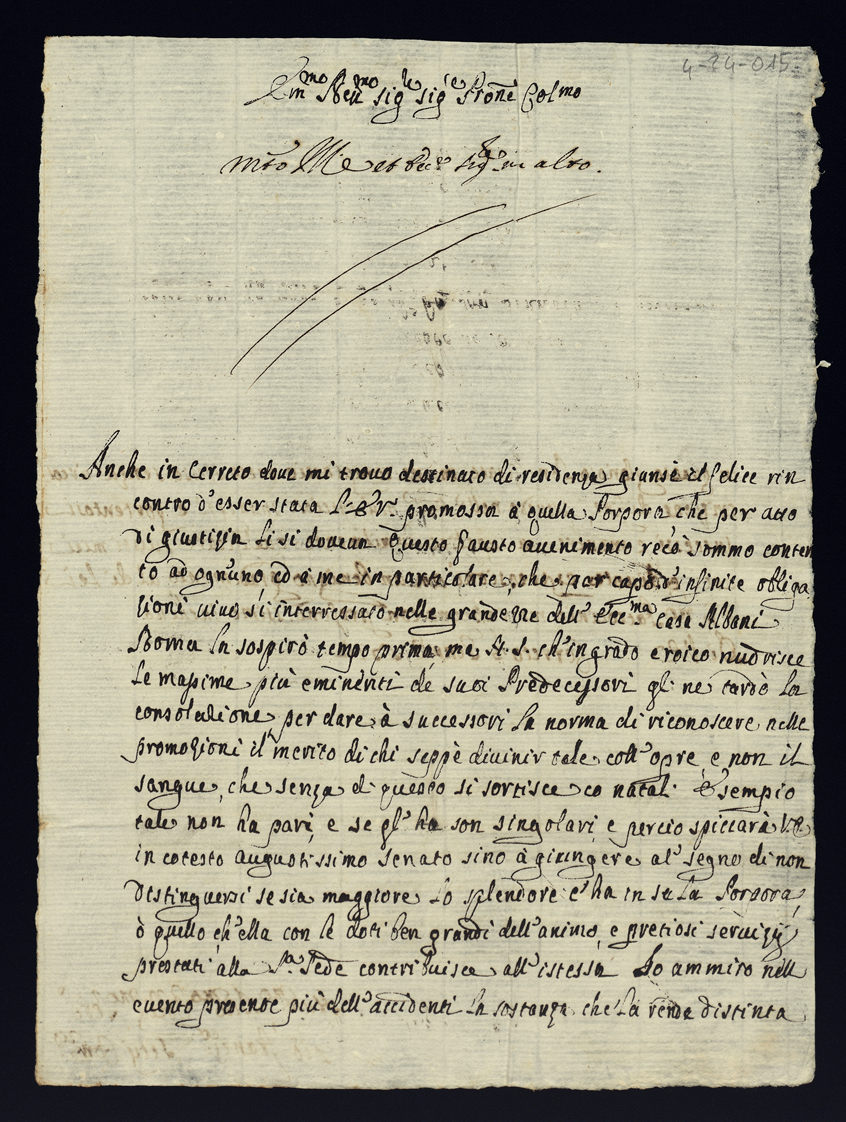 4-14-015
Em.mo Reu.mo sig.re sig.re Prone Colmo
Anche in Cerreto doue mi trouo destinato di residenza giunse il felice rin
contro d'esser stata l'E. V. promossa à quella Porpora che per atto
di giustizia li si doueua. Questo fausto auuenimento recò sommo conten
to ad ogn'uno, ed à me in particolare, che par capo d'infinite obliga
zioni uiuo sì interressato nelle grandezze dell'Ecc.ma casa Albani
Roma la sospirò tempo prima, ma N. S. ch'in grado eroico nudrisce
le massime più eminenti de suoi Predecessori gli ne tardò la
consolazione per dare à successori la norma di riconoscere nelle
promozioni il merito di chi seppè diuinir tale coll'opre, e non il
sangue, che senza di questo si sortisce co natali. Esempio
tale non ha pari, e se gl'ha son singolari, e perciò spiccarà V. E.
in cotesto augustissimo senato sino à giungere al segno di non
distinguersi se sia maggiore lo splendore c'ha in se la Porpora,
ò quello, ch'ella con le doti ben grandi dell'animo, e pretiosi seruizij
prestati alla S.ta Sede contribuisce all'istessa. Io ammiro nell
euento presente più dell'accidenti la sostanza che la renda distinta